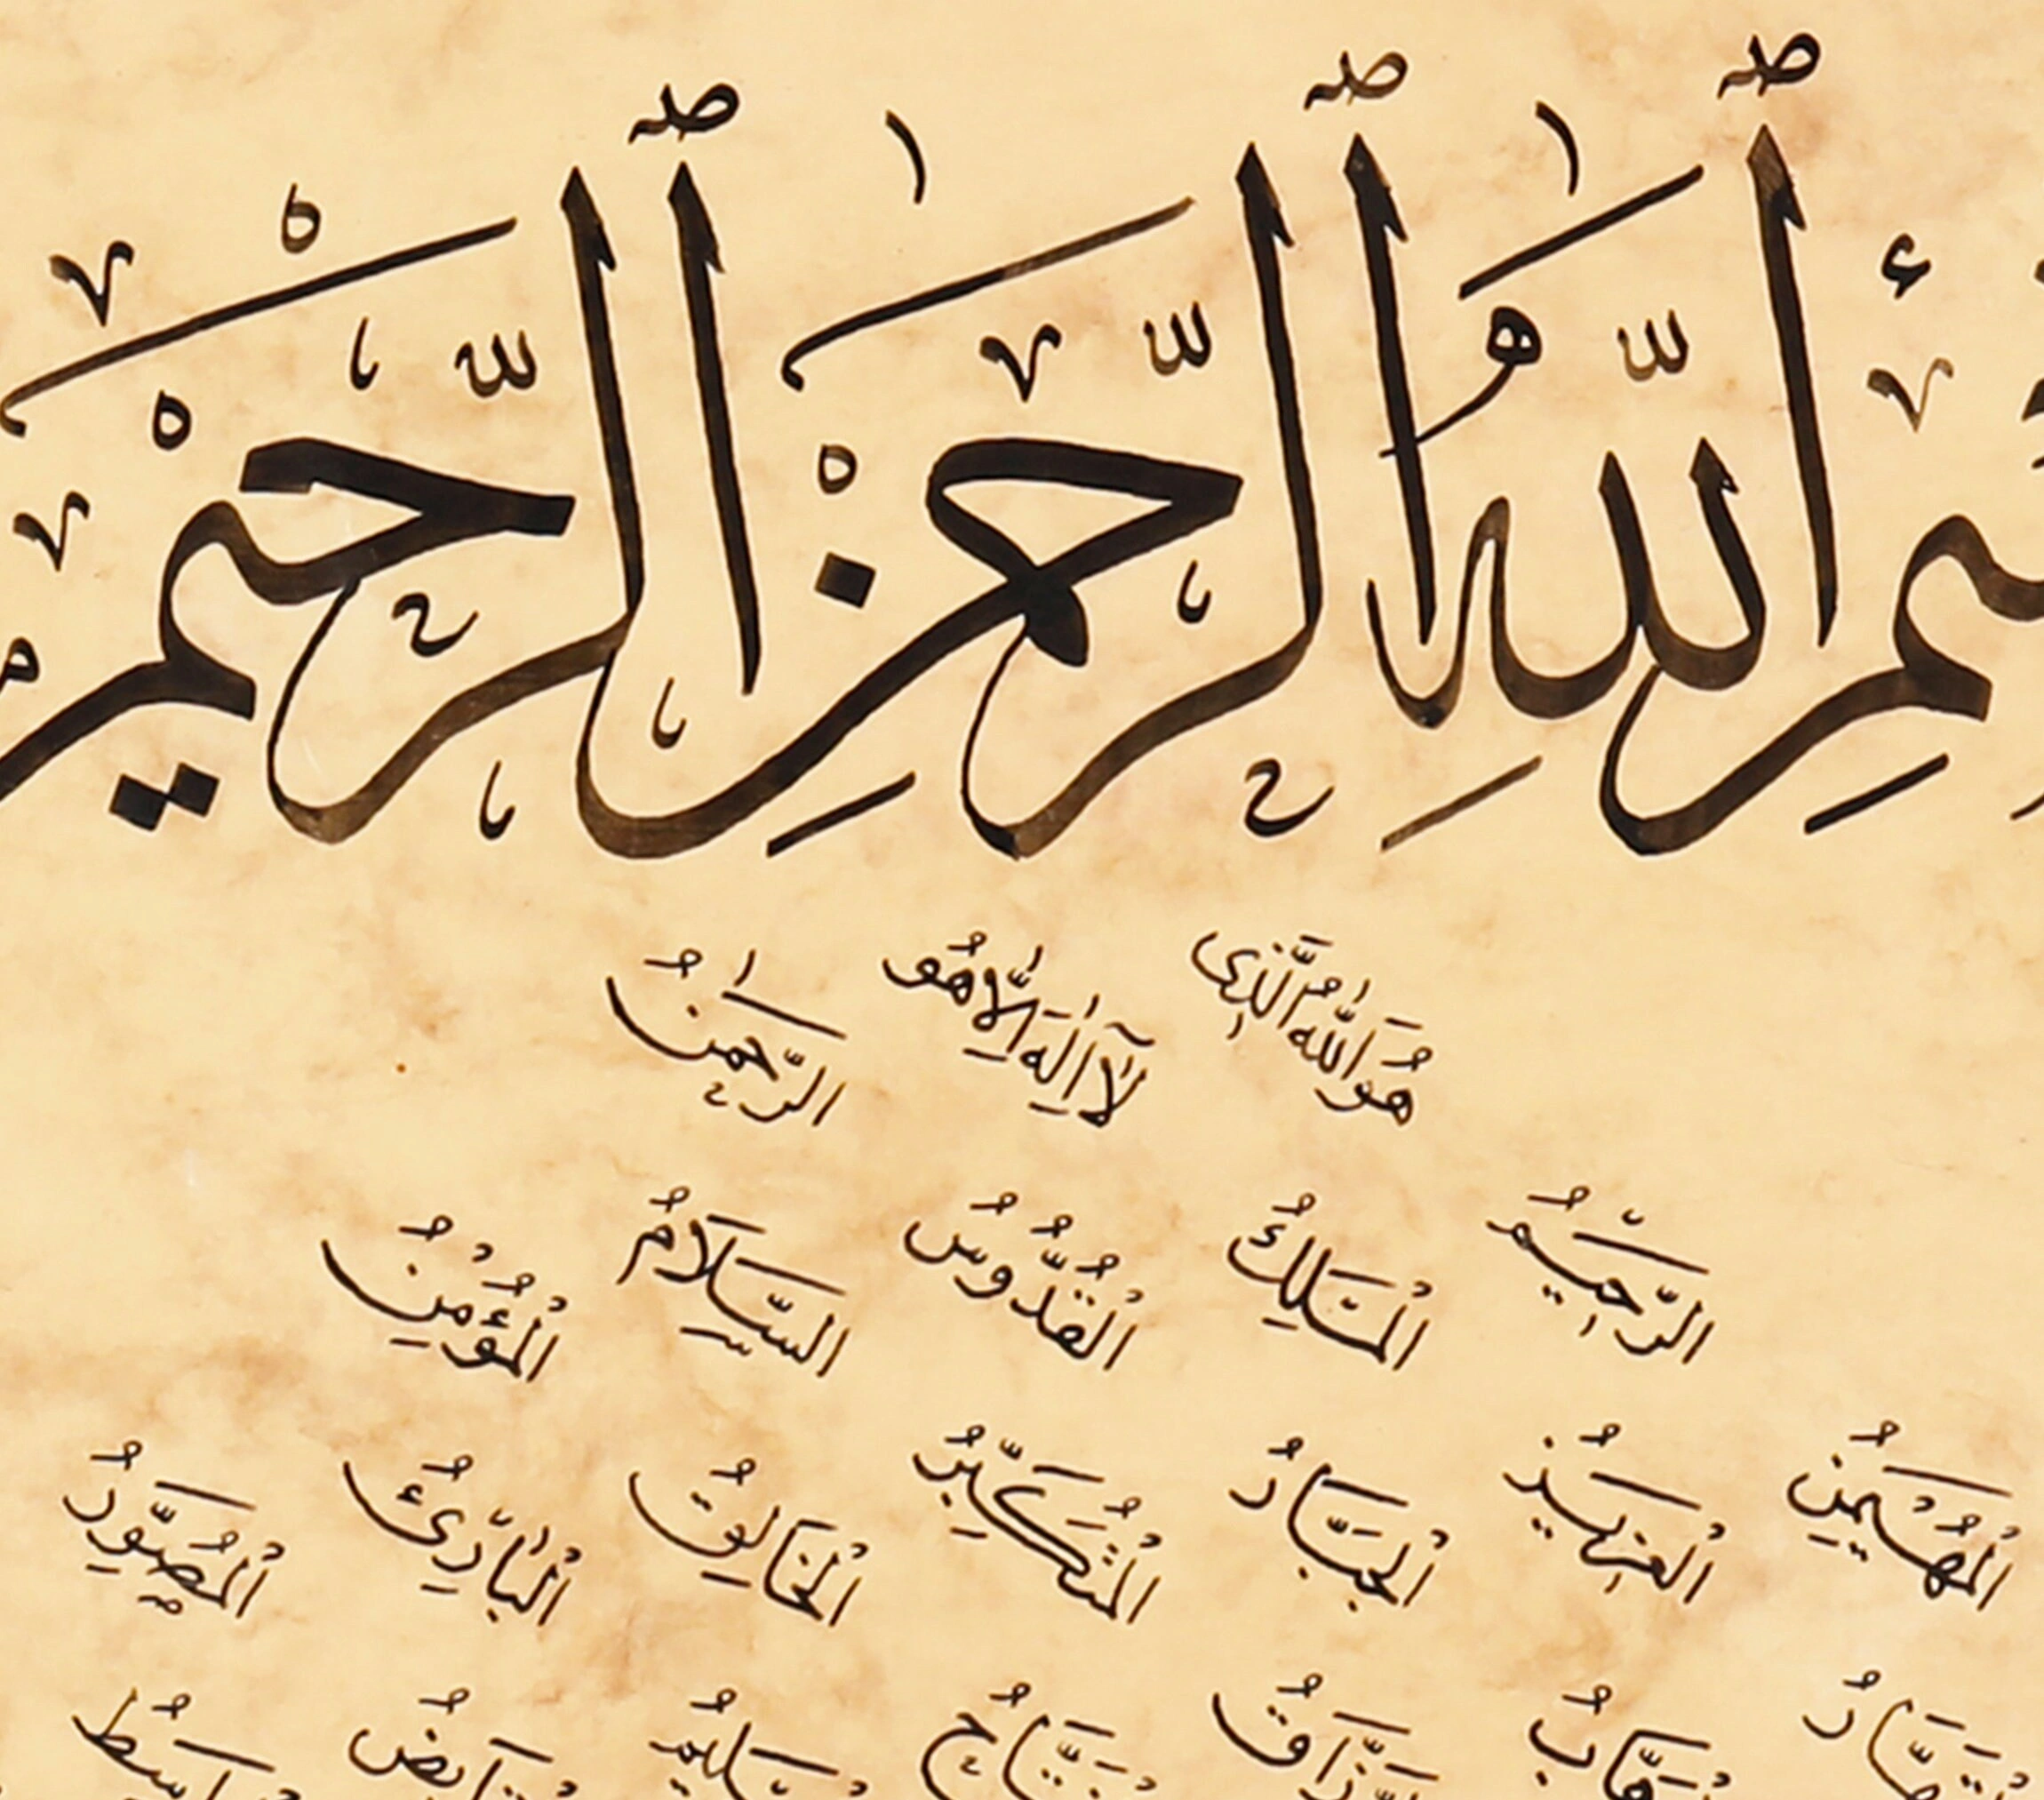 ٱللهِ ٱلرَّحْمٰنِ ٱلرَّحِيْمِ
هُوَ اللهُ الَّذِى لَآ اِلٰهَ اِلَّا هُوَ الرَّحْمٰنُ
الرَّحِيمُ الْمَلِكُ الْقُدُّوسُ السَّلَامُ الْمُؤْمِنُ
الْمُهَيْمِنُ الْعَزِيزُ الْجَبَّارُ الْمُتَكَبِّرُ الْخَالِقُ الْبَارِئُ الْمُصَوِّرُ